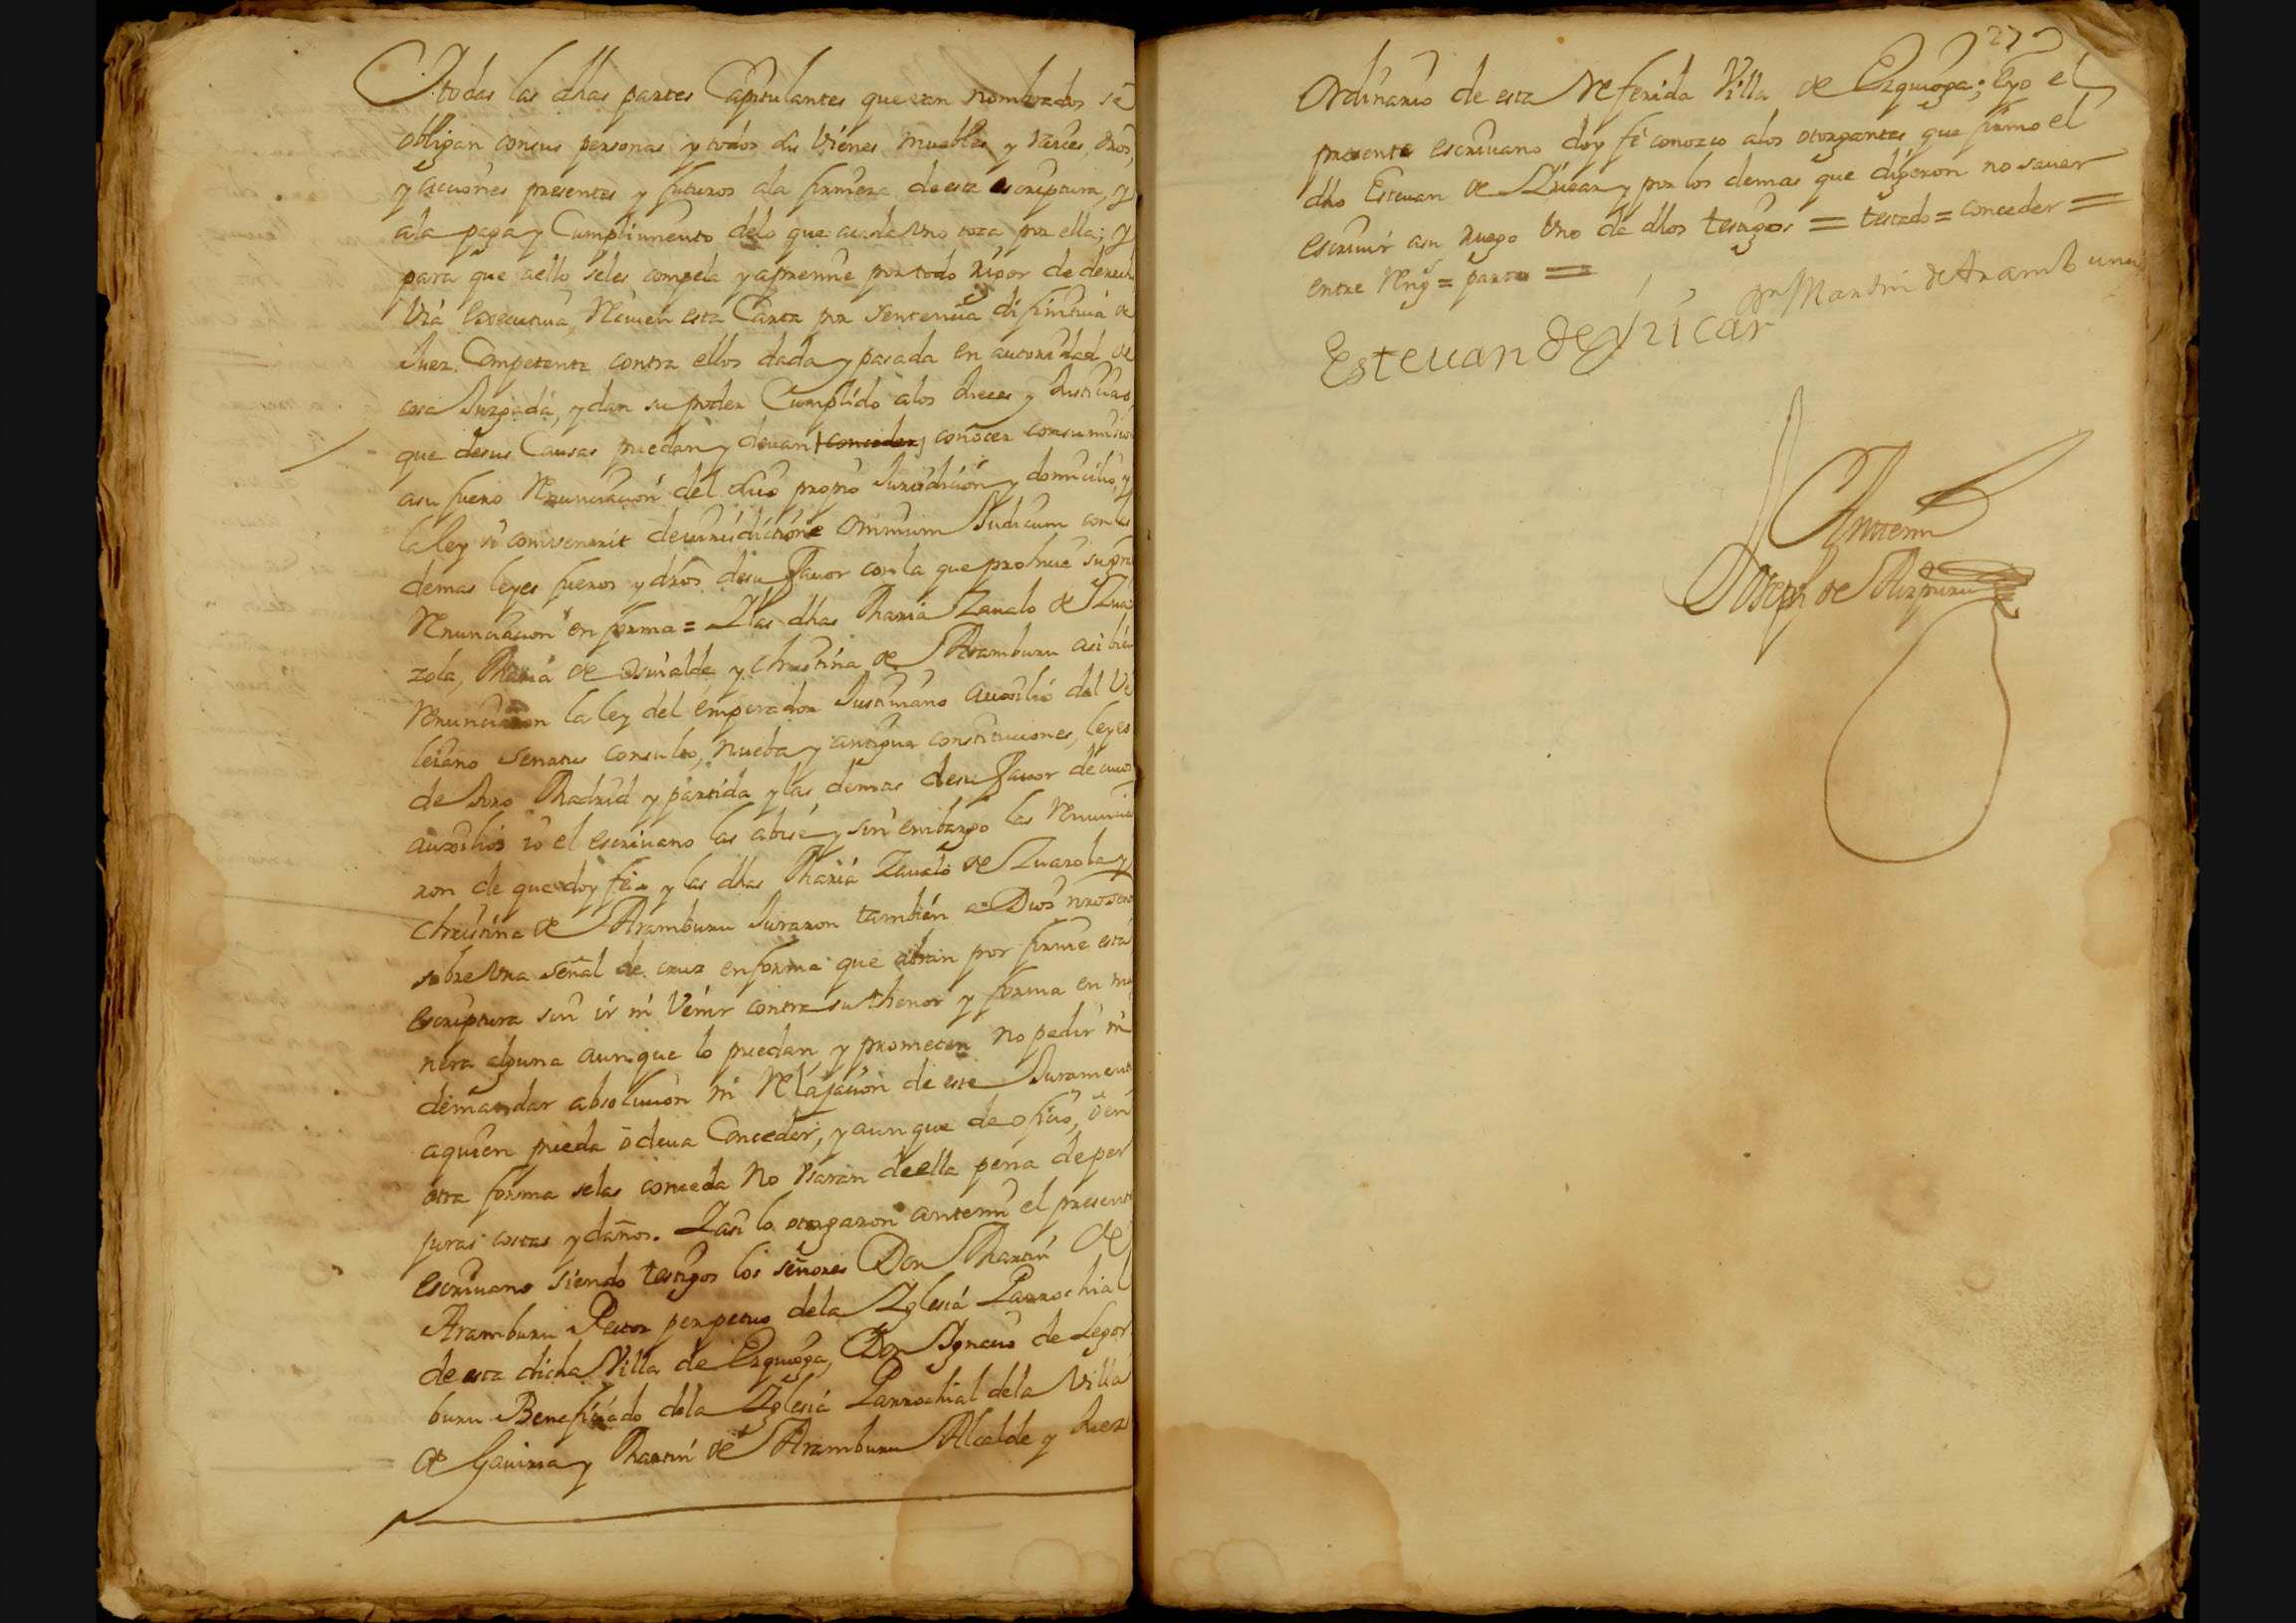 Y todas las dhas partes Capitulantes que van nombrados se
obligan consus personas y todos sus vienes muebles y raices, dros,
y acciones presentes y futuros ala firmeza de esta escriptura, y
ala paga y Cumplimiento delo que acada uno toca por ella; y
para que aello seles compela y apremie por todo rigor de derecho
Via executiva, Reciuen esta Carta por sentencia difinitiua de
Juez Competente contra ellos dada y pasada en autoridad de
cosa Juzgada, y dan su poder Cumplido alos Jueces y Justicias,
que desus Causas puedan y deuan conceder conocer consumision
asu fuero Renunciacion del suio propio Jurisdicion y domicilio, y
la ley si convenerit de jurisdictione omnium Judicum con las
demas leyes fueros y dros desu fauor con la que prohiue la gral
Renunciacion en forma = Y las dhas Maria Zaualo de Zua
zola, Maria de Osinalde y Christina de Aramburu asi bien
Renunciaron la ley del emperador Justiniano auxilio del Ve
leiano Senatus consulto, nueba y antigua constituciones, leyes
de toro Madrid y partida y las demas desu fauor de cuios
auxilios io el escriuano las abisé y sin embargo las Renuncia
ron de que doy fee y las dhas Maria Zaualo de Zuazola y
Christina de Aramburu Juraron tambien a Dios nro señor
sobre Una señal de cruz en forma que abran por firme esta
escriptura sin ir ni Venir contra su thenor y forma en ma
nera alguna aunque lo puedan y prometen no pedir ni
demandar absolucion ni Relajacion de este Juramento
aquien pueda ô deua Conceder, y aunque de oficio, ô en
otra forma selas conceda no Usaran de ella pena de per
juras costas y daños. Y asi lo otorgaron antemi el presente
escriuano siendo testigos los señores Don Martin de
Aramburu Rector perpetuo dela Yglesia Parrochial
de esta dicha Villa de Ezquioga, Don Ygnacio de Legor
buru Beneficiado dela Yglesia Parrochial dela Villa
de Gauiria y Martin de Aramburu Alcalde y Juez
27
Ordinario de esta Referida Villa de Ezquioga; e yo el
presente escriuano doy fe conozco alos otorgantes que firmo el
dho Esteuan de Yricar y por los demas que digeron no sauer
escriuir asu ruego Uno de dhos testigos = testado = conceder =
entre Reng = partes =
Dn Martin de Aramburu
Esteuan de Yricar
Antemi
Joseph de Aizpuru